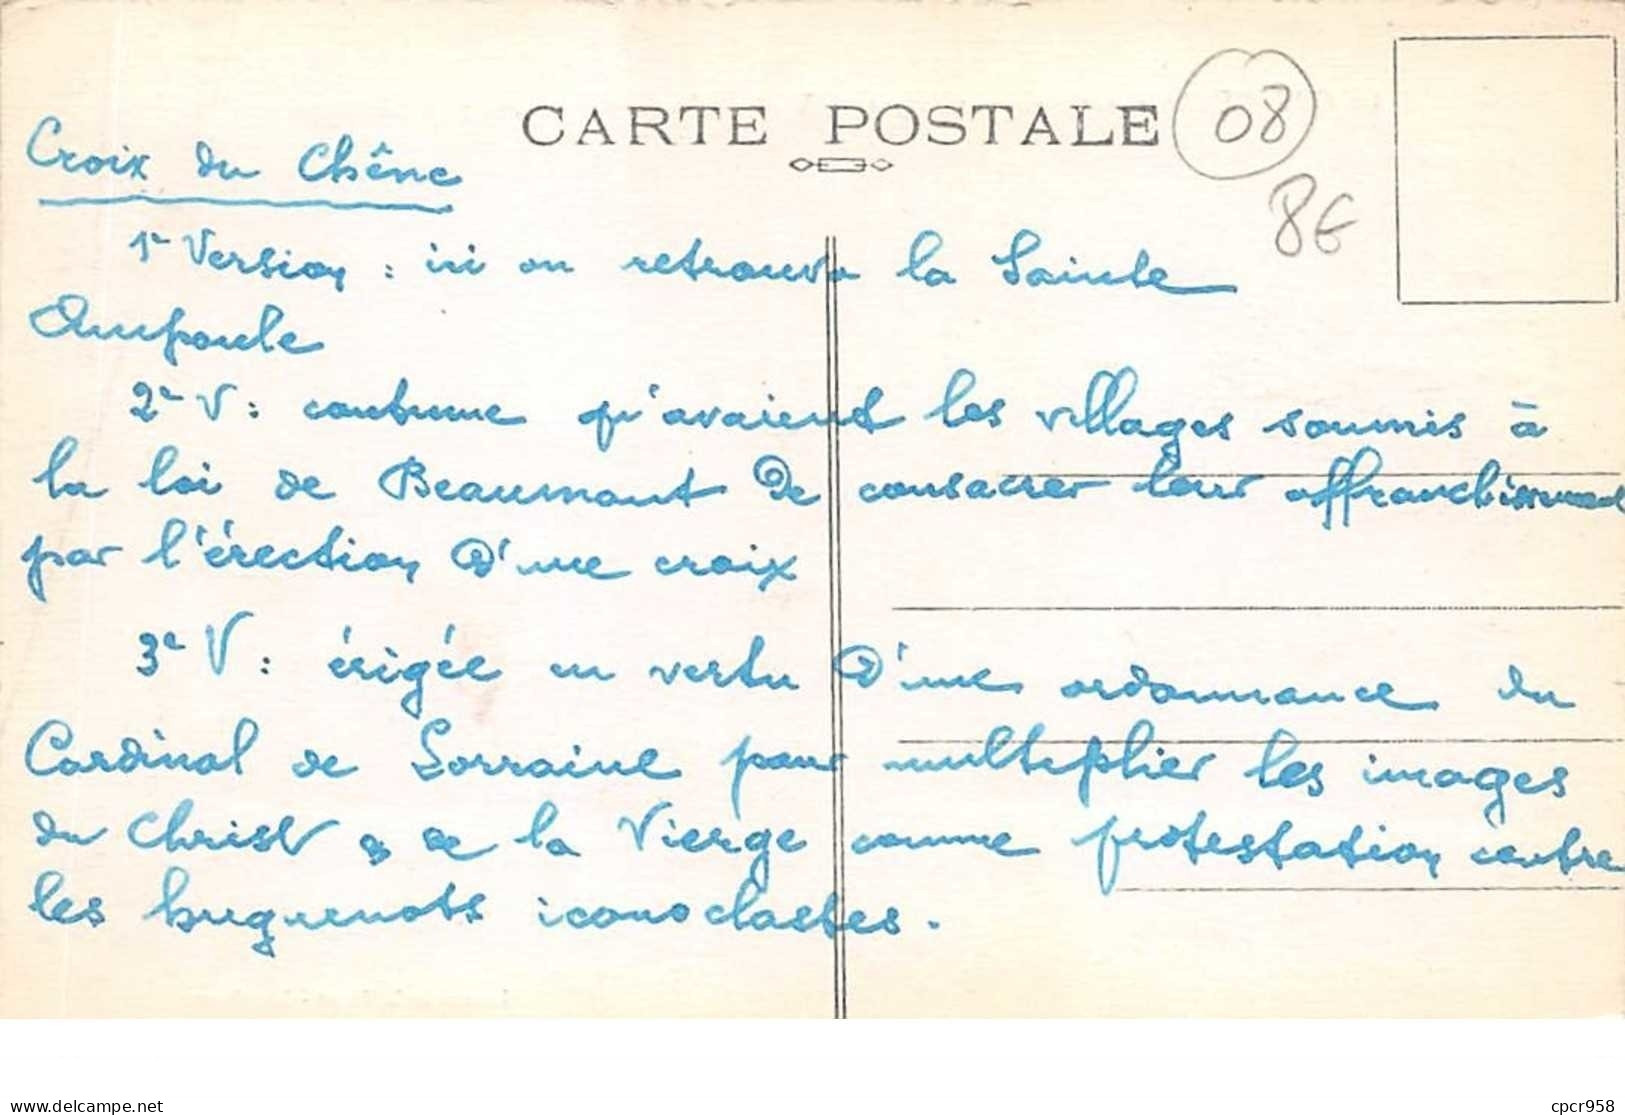 CARTE POSTALE
08
8€
Croix du Chêne
1e Version : ici on retrouva la Sainte
Ampoule
2e V : coutume qu'avaient les villages soumis à
la loi de Beaumont de consacrer leur affranchissement
par l'érection d'une croix
3e V : érigée en vertu d'une ordonnance du
Cardinal de Lorraine pour multiplier les images
du Christ & de la Vierge comme protestation contre
les huguenots iconoclastes.
www.delcampe.net
cpcr958